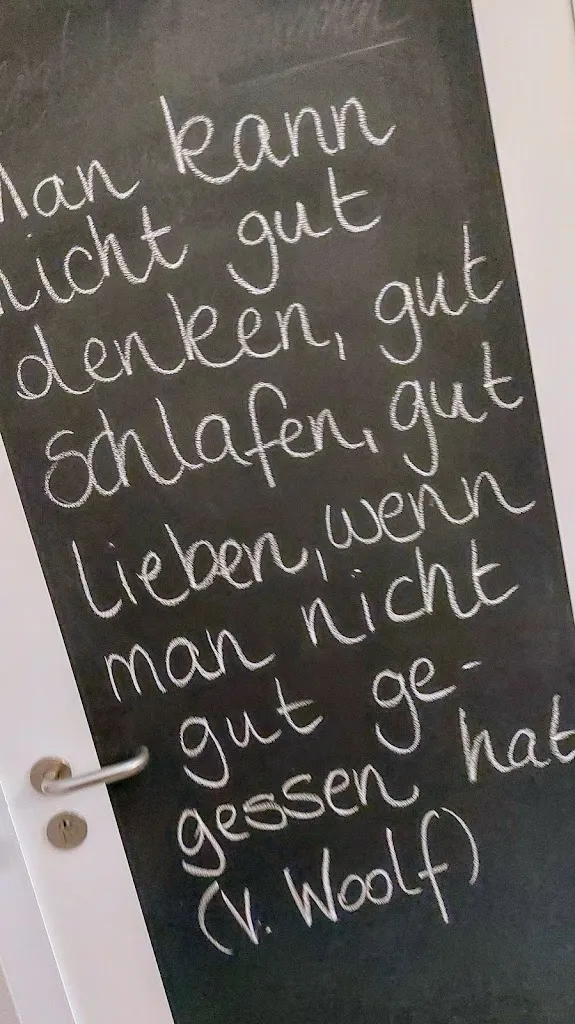 Man kann
nicht gut
denken, gut
schlafen, gut
lieben, wenn
man nicht
gut ge-
gessen hat
(V. Woolf)